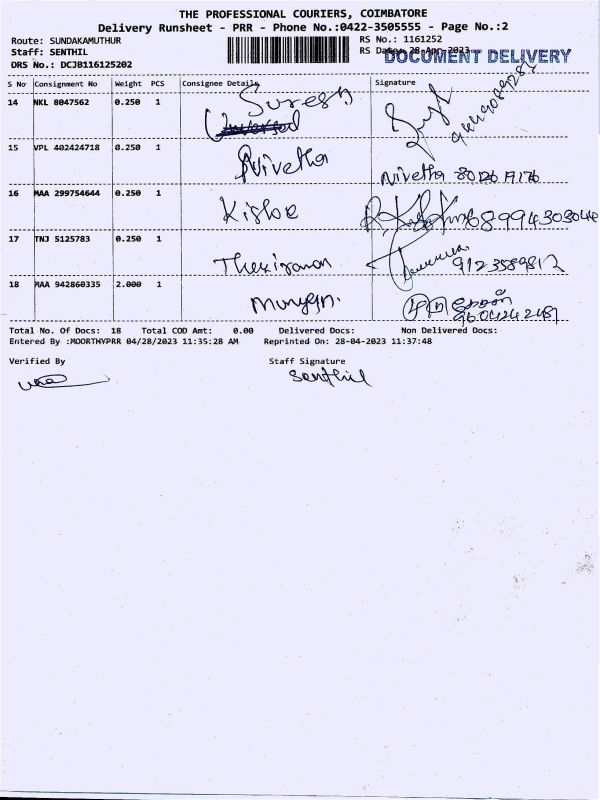 THE PROFESSIONAL COURIERS, COIMBATORE
Delivery Runsheet - PRR - Phone No.:0422-3505555 - Page No.:2
Route: SUNDAKAMUTHUR
RS No.: 1161252
Staff: SENTHIL
RS Date: 28-Apr-2023
DOCUMENT DELIVERY
DRS No.: DCJB116125202
S No Consignment No Weight PCS Consignee Details Signature
14 NKL 8047562 0.250 1 Suresh
15 VPL 402424718 0.250 1 Nivetha Nivetha
16 MAA 299754644 0.250 1 Kishor
17 TNJ 5125783 0.250 1
18 MAA 942860335 2.000 1
Total No. Of Docs: 18 Total COD Amt: 0.00 Delivered Docs: Non Delivered Docs:
Entered By :MOORTHYPRR 04/28/2023 11:35:28 AM Reprinted On: 28-04-2023 11:37:48
Verified By Staff Signature
Senthil